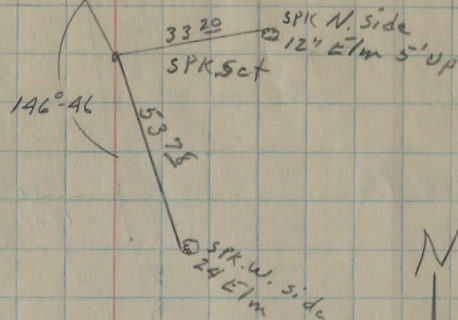 33 20
SPK N. side
12" Elm 5' up
SPK Set
146°-46
53 78
SPK. W. side
24 Elm
N